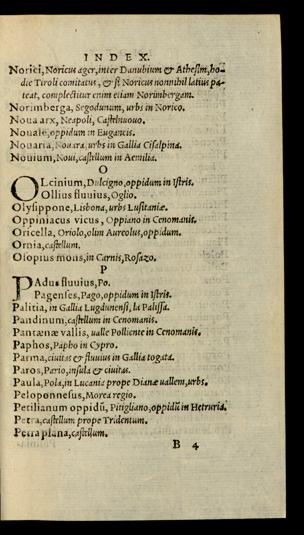 INDEX.
Norici, Noricus ager, inter Danubium & Athesim, ho-
die Tiroli comitatus, & si Noricus nonnihil latius pa-
teat, complectitur enim etiam Norimbergam.
Norimberga, Segodunum, urbs in Norico.
Noua arx, Neapoli, Castelnuouo.
Nouale, oppidum in Euganeis.
Nouaria, Nouara, urbs in Gallia Cisalpina.
Nouium, Noui, castellum in Aemilia.
O
OLcinium, Dulcigno, oppidum in Istris.
Ollius fluuius, Oglio.
Olysippone, Lisbona, urbs Lusitaniæ.
Oppiniacus vicus, Oppiano in Cenomanis.
Oricella, Oriolo, olim Aureolus, oppidum.
Ornia, castellum.
Osopius mons, in Carnis, Rosazo.
P
PAdus fluuius, Po.
Pagenses, Pago, oppidum in Istris.
Palitia, in Gallia Lugdunensi, la Palissa.
Pandinum, castellum in Cenomanis.
Pantænæ vallis, ualle Polliente in Cenomanis.
Paphos, Papho in Cypro.
Parma, ciuitas & fluuius in Gallia togata.
Paros, Pario, insula & ciuitas.
Paula, Pola, in Lucania prope Dianæ uallem, urbs.
Peloponnesus, Morea regio.
Petilianum oppidū, Pitigliano, oppidū in Hetruria.
Petra, castellum prope Tridentum.
Petra plana, castellum.
B 4